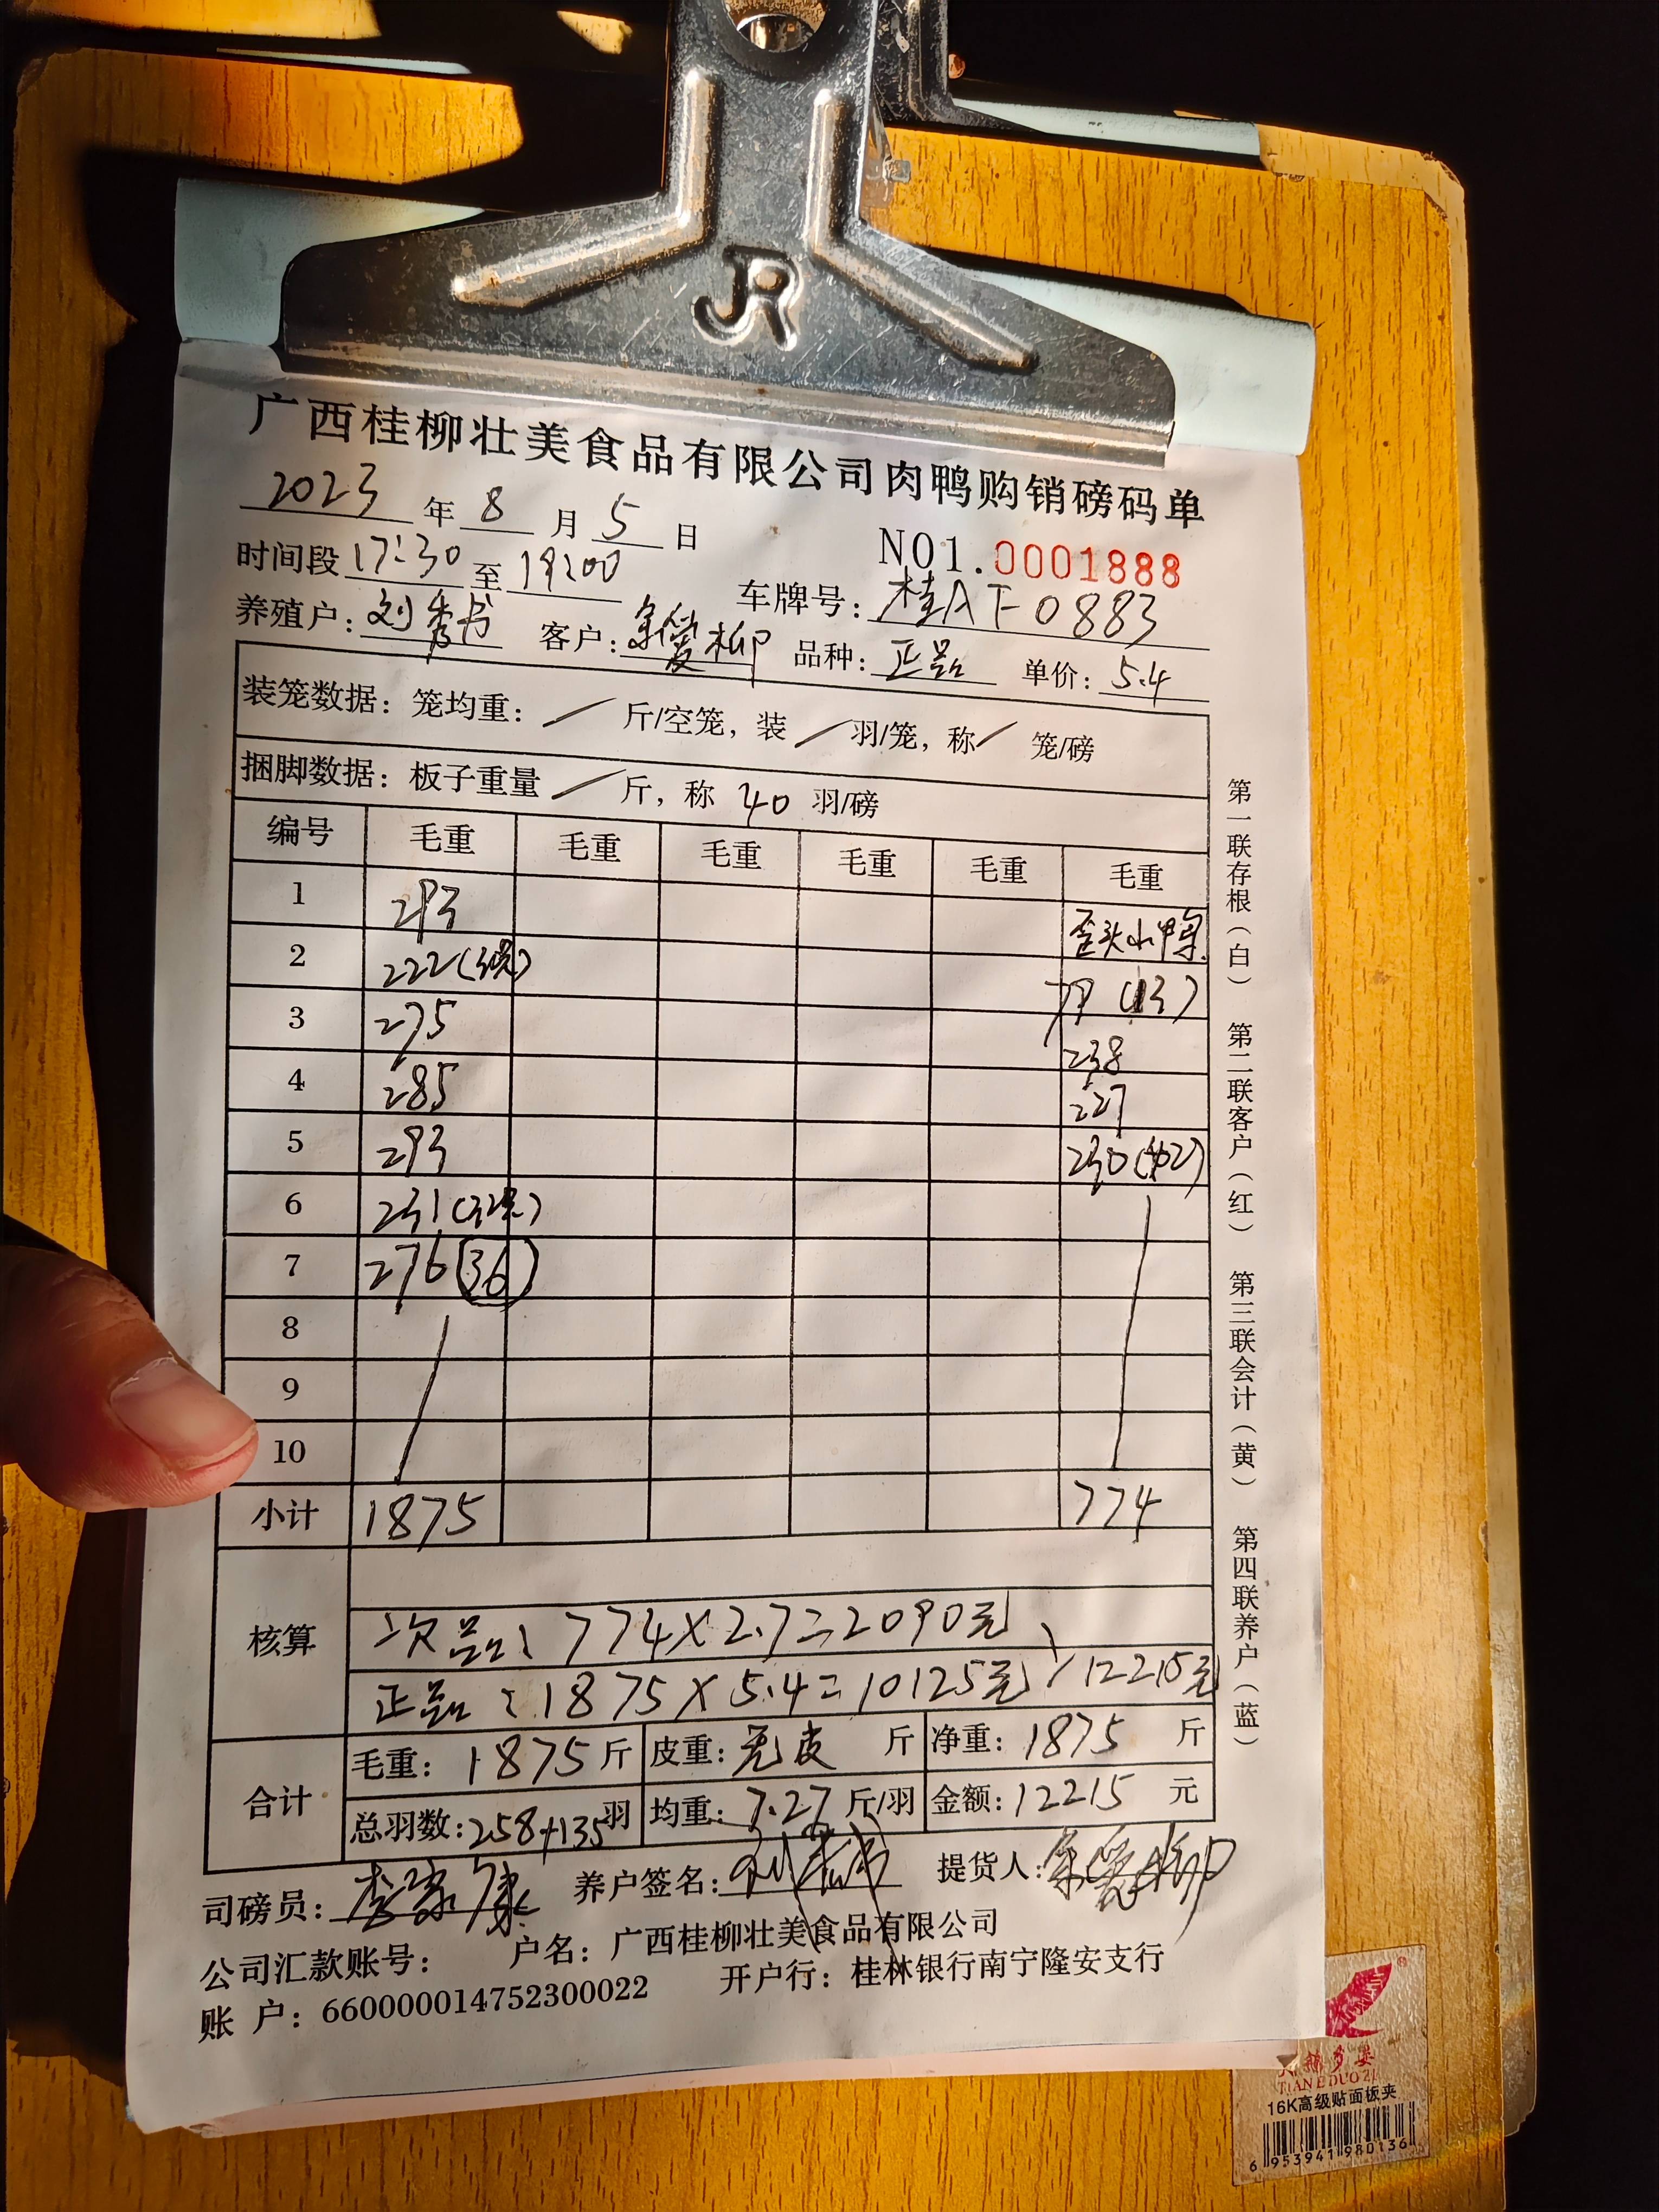 JR
广西桂柳壮美食品有限公司肉鸭购销磅码单
2023年8月5日
NO1.0001888
时间段17:30至19:00 车牌号:桂AF0883
养殖户:刘秀书 客户:余爱柳 品种:正品 单价:5.4
装笼数据:笼均重:/斤/空笼,装/羽/笼,称/笼/磅
捆脚数据:板子重量/斤,称40羽/磅
编号 毛重 毛重 毛重 毛重 毛重 毛重
1 293 歪头小鸭
2 222 79(13)
3 275 238
4 285 227
5 293 230
6 231
7 276(36)
8
9
10
小计 1875 774
核算
次品:774×2.7=2090元
正品:1875×5.4=10125元 12215元
合计
毛重:1875斤 皮重:无皮斤 净重:1875斤
总羽数:258+135羽 均重:7.27斤/羽 金额:12215元
司磅员:李家康 养户签名: 提货人:余爱柳
公司汇款账号: 户名:广西桂柳壮美食品有限公司
账 户:660000014752300022 开户行:桂林银行南宁隆安支行
第一联存根(白) 第二联客户(红) 第三联会计(黄) 第四联养户(蓝)
TIANEDUOZI
16K高级贴面板夹
6 953941 980136